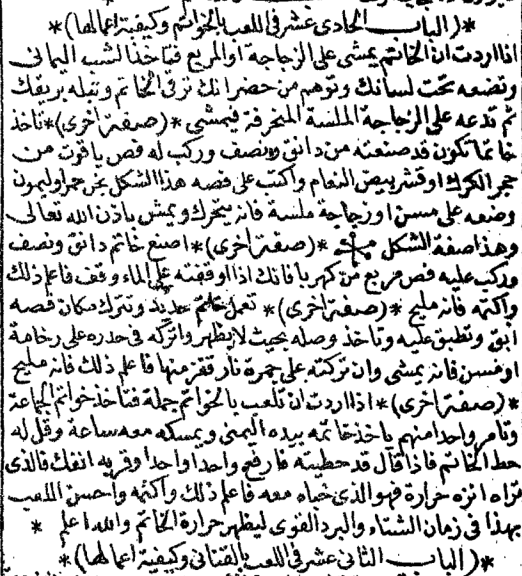 *(الباب الحادى عشر فى اللعب بالخواتم وكيفية اعمالها)*
اذا اردت ان الخاتم يمشى على الزجاجة او المربع فتاخذ الشب اليمانى
وتضعه تحت لسانك وتوهم من حضر انك ترقى الخاتم وتفله بريقك
ثم تدعه على الزجاجة الملسة المنحرفة فيمشى *(صفة اخرى)* تاخذ
خاتما تكون قد صنعته من دانق ونصف وركب له فص ياقوت من
حجر الكرك او قشر بيض النعام واكتب على فصه هذا الشكل بخمر اوليمون
وضعه على مسن او زجاجة ملسة فانه يتحرك ويمشى باذن الله تعالى
وهذا صفة الشكل *(صفة اخرى)* اصنع خاتم دانق ونصف
وركب عليه فص مربع من كهربا فانك اذا اوقفته على الماء وقف فاعلم ذلك
واكتمه فانه مليح *(صفة اخرى)* تعمل خاتم حديد وتترك مكان فصه
ابق وتطبق عليه وتاخذ وصله بحيث لا يظهر واتركه فى حدره على رخامة
او مسن فانه يمشى وان تركته على جمرة نار قفز منها فاعلم ذلك فانه مليح
*(صفة اخرى)* اذا اردت ان تلعب بالخواتم جملة فتاخذ خواتم الجماعة
وتامر واحدا منهم ياخذ خاتمه بيده اليمنى ويمسكه معه ساعة وقل له
حط الخاتم فاذا قال قد حطيته فارفع واحدا واحدا وقربه انفك فالذى
تراه اثره حرارة فهو الذى خباه معه فاعلم ذلك واكتمه واحسن اللعب
بهذا فى زمان الشتاء والبرد القوى ليظهر حرارة الخاتم والله اعلم *
*(الباب الثانى عشر فى اللعب بالقنانى وكيفية اعمالها)*